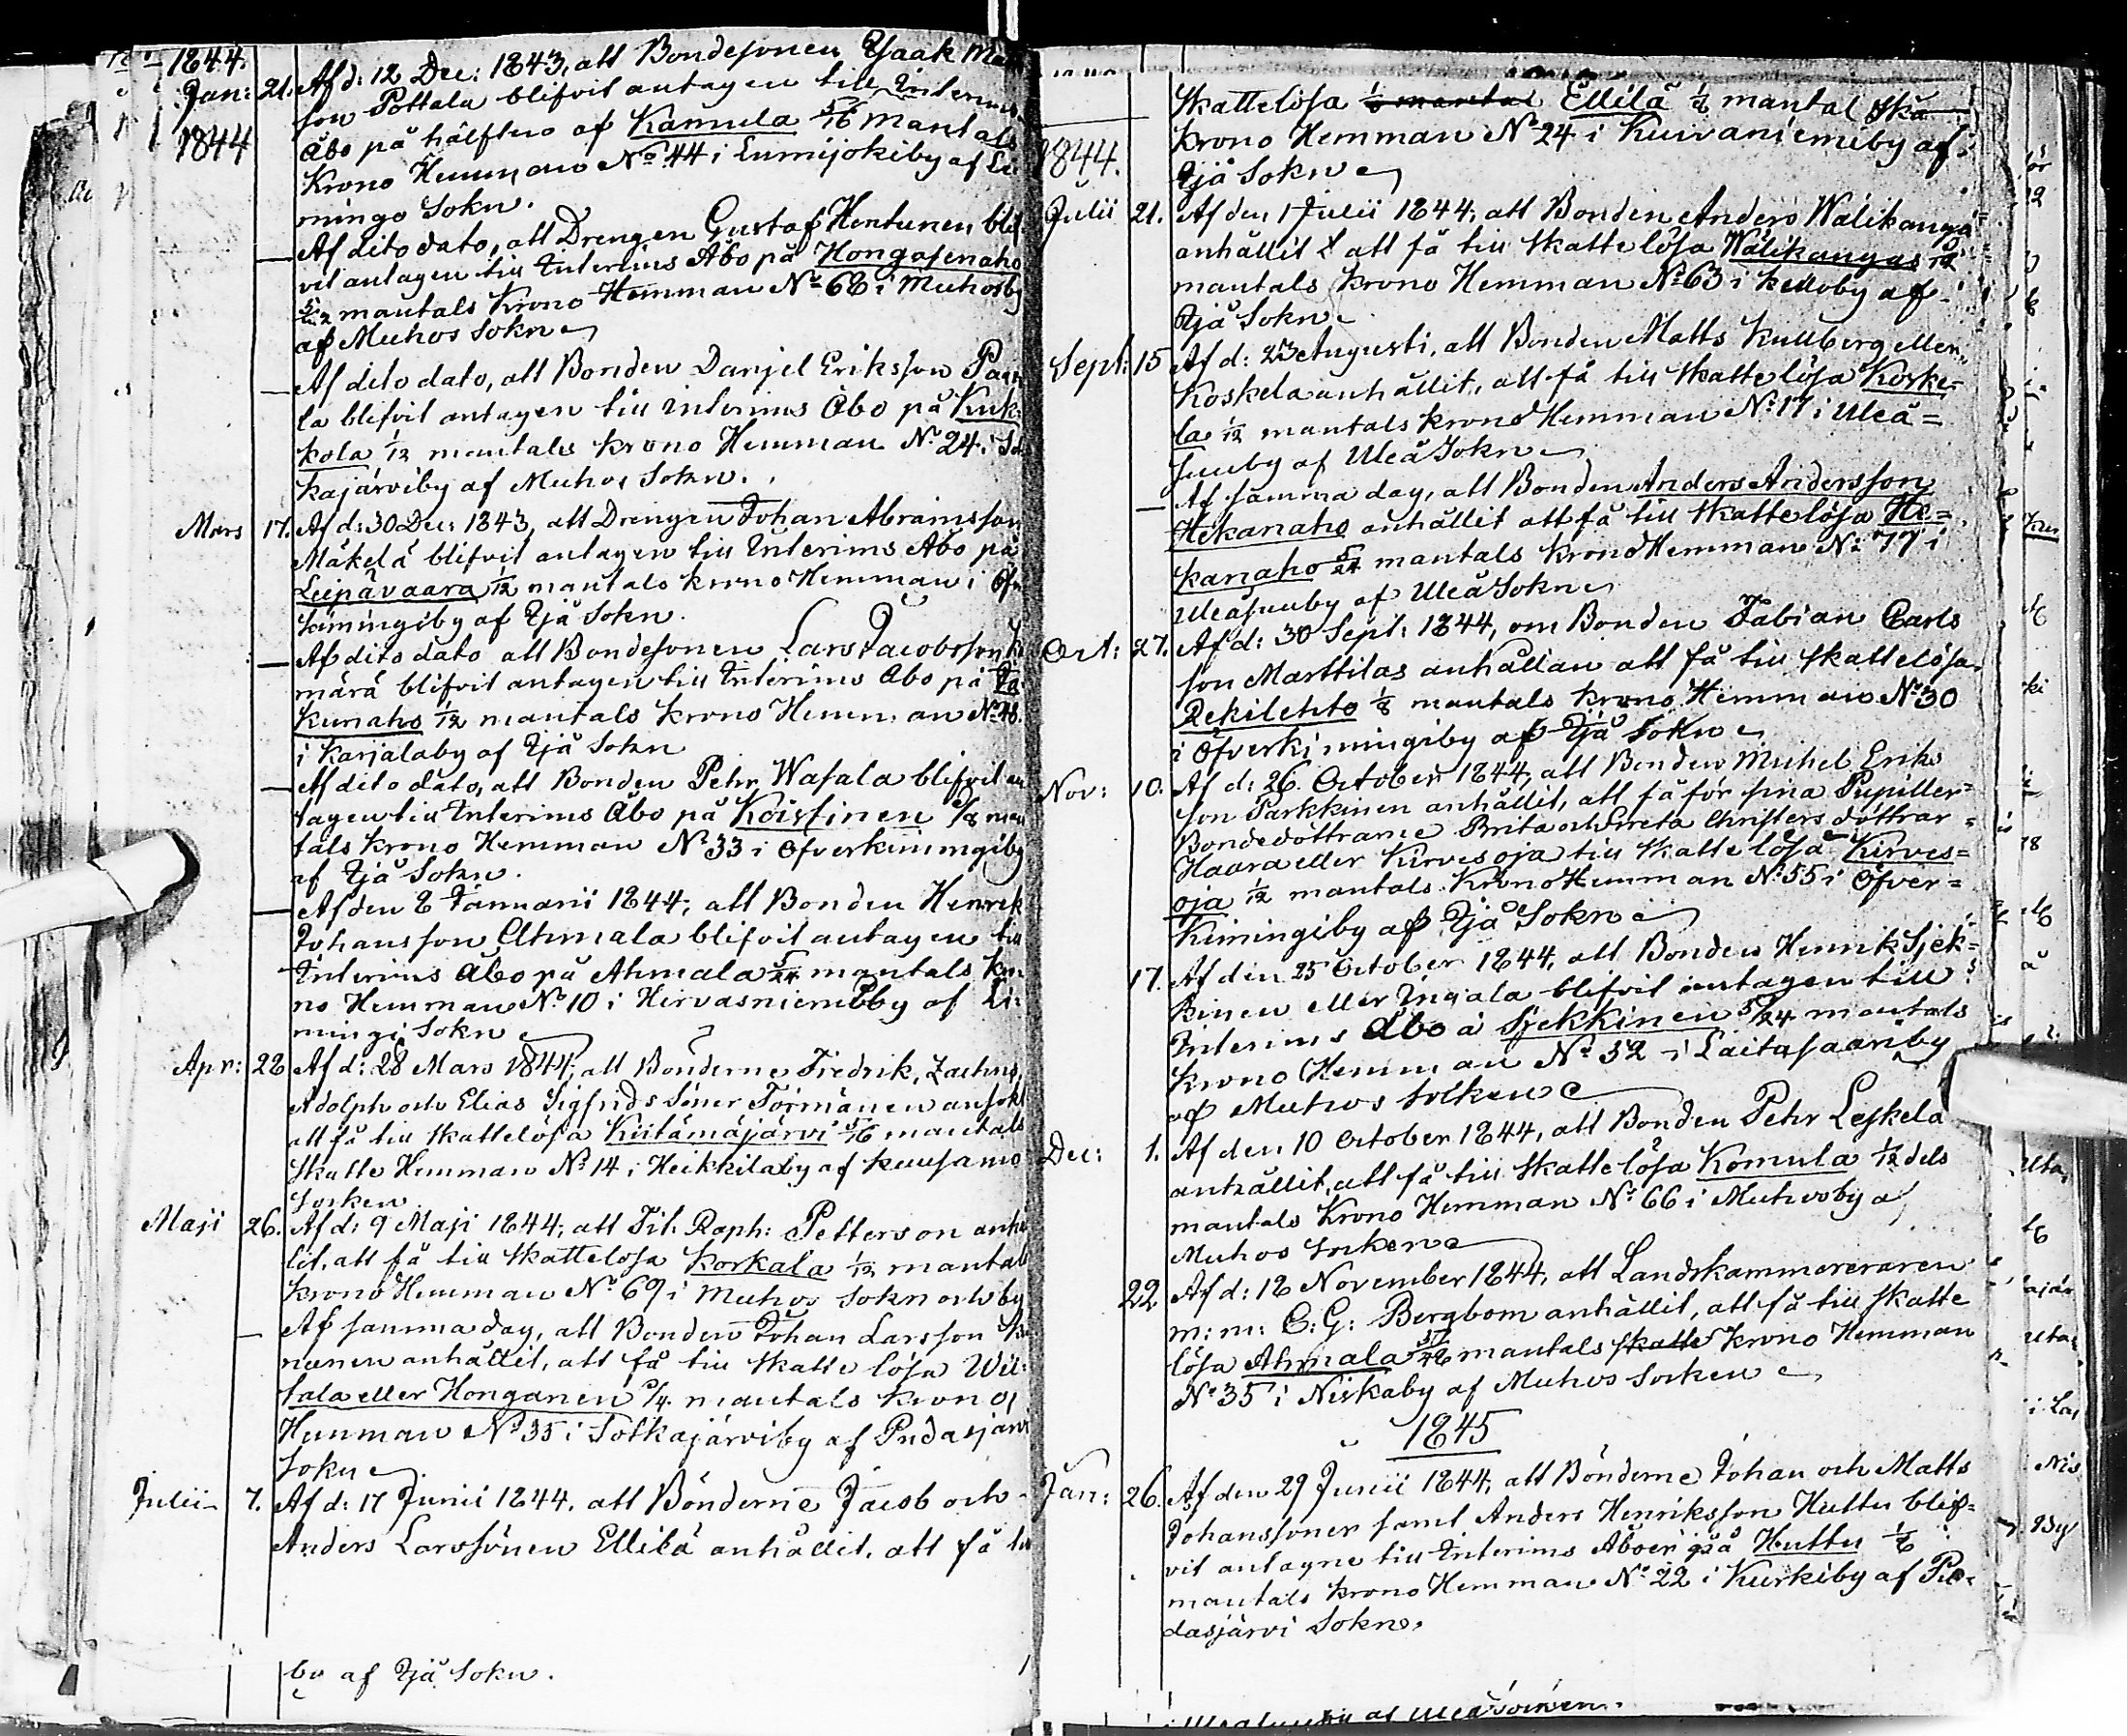 1844.
Jan: 21. Af d: 12 Dec: 1843, att Bondesonen Isaak
son Pottala blifvit antagen till Interims
Åbo på hälften af Kamula 5/16 mantals
1844
Krono Hemman No 44 i Lumijokiby af Li
mingo Sokn.
— Af dito dato, att Drengen Gustaf Hentunen blif
vit antagen till Interims Åbo på Hongasenaho
5/12 mantals Krono Hemman No 68 i Muhosby
af Muhos Sokn
— Af dito dato, att Bonden Danjel Eriksson
la blifvit antagen till Interims Åbo på Kuk
kola 1/12 mantals Krono Hemman No 24 i So
kajärviby af Muhos Sokn.
Mars 17. Af d: 30 Dec: 1843, att Drengen Johan Abramsson
Mäkelä blifvit antagen till Interims Åbo på
Leipävaara 1/12 mantals krono Hemman i Öfv
kimingiby af Ijå Sokn.
— Af dito dato att Bondesonen Lars Jacobsson
märä blifvit antagen till Interims Åbo på
kunaho 1/12 mantals Krono Hemman No 48.
i Karjalaby af Ijå Sokn
— Af dito dato, att Bonden Pehr Wasala blifvit an
tagen till Interims Åbo på Koistinen 1/8 man
tals Krono Hemman No 33 i Öfverkimingiby
af Ijå Sokn.
— Af den 8 Januarii 1844, att Bonden Henrik
Johansson Ahmala blifvit antagen till
Interims Åbo på Ahmala 5/24 mantals Kro
no Hemman No 10 i Hirvasniemiby af Li
mingi Sokn
Apr: 28 Af d: 28 Mars 1844, att Bönderne Fredrik, Zachris,
Adolph och Elias Sigfrids Söner Törmänen ansökt
att få till Skattelösa Kiitämäjärvi 5/16 mantals
Skatte Hemman No 14 i Heikkilaby af Kuusamo
Sorken
Maji 26. Af d: 9 Maji 1844, att Tit. Raph: Petterson anhå
lit, att få till Skattelösa Korkala 1/12 mantals
Krono Hemman No 69 i Muhos Sokn och by
— Af samma dag, att Bonden Johan Larsson
nanen anhållit, att få till Skatte lösa Wii
sala eller Honganen 1/4 mantals krono
Hemman No 35 i Sotkajärviby af Pudasjärvi
Sokn
Julii 7. Af d: 17 Junii 1844. att Bönderne Jacob och
Anders Larssönen Ellilä anhållit, att få till
by af Ijå Sokn.
Skattelösa 1/8 mantal Ellilä 1/6 mantal Ska
Krono Hemman No 24 i Kuivaniemiby af
1844.
Ijå Sokn
Julii 21. Af den 1 Julii 1844, att Bonden Anders Wälikangas
anhållit att få till Skatte lösa Wälikangas 5/12
mantals Krono Hemman No 63 i Kelloby af
Ijå Sokn
Sept: 15 Af d: 23 Augusti, att Bonden Matts Kullberg eller
Koskela anhållit, att få till Skatte lösa Koske=
la 1/12 mantals Krono Hemman No 17 i Uleå=
suuby af Uleå Sokn
— Af samma dag, att Bonden Anders Andersson
Hekanaho anhållit att få till Skatte lösa He=
kanaho 5/24 mantals Krono Hemman No 77 i
Uleåsuuby af Uleå Sokn
Oct: 27. Af d: 30 Sept: 1844, om Bonden Fabian Carls
son Marttilas anhållan att få till Skattelösa
Rekilehto 1/8 mantals Krono Hemman No 30
i Öfverkimingiby af Ijå Sokn
Nov: 10. Af d: 26. October 1844, att Bonden Michel Eriks
son Parkkinen anhållit, att få för sina Pupiller=
Bondedöttrarne Brita och Greta Christers döttrar =
Haara eller Kirvesoja till Skatte lösa Kirves=
oja 1/12 mantals Krono Hemman No 55 i Öfver=
Kimingiby af Ijå Sokn
17. Af den 25 October 1844, att Bonden Henrik Sjek=
kinen eller Inqala blifvit antagen till
Interims Åbo å Sjekkinen 5/24 mantals
Krono Hemman No 52 i Laitasaariby
af Muhos Sokken
Dec: 1. Af den 10 October 1844, att Bonden Pehr Leskela
anhållit, att få till Skatte lösa Komula 1/12 dels
mantals Krono Hemman No 66 i Muhosby a
Muhos Sorken
22 Af d: 18 November 1844, att Landskammereraren
m: m: C: G: Bergbom anhållit, att få till Skatte
lösa Ahmala 37/48 mantals skatte Krono Hemman
No 35 i Niskaby af Muhos Sorken
1845
Jan: 26. Af den 29 Junii 1844, att Bönderne Johan och Matts
Johanssöner samt Anders Henriksson Huttu blif=
vit antagne till Interims Åboer på Huttu 1/6
mantals Krono Hemman No 22 i Kurkiby af Pu=
dasjärvi Sokn.